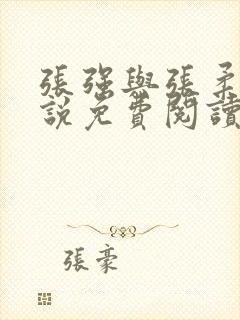 張強與張柔
說免費閱讀
張豪